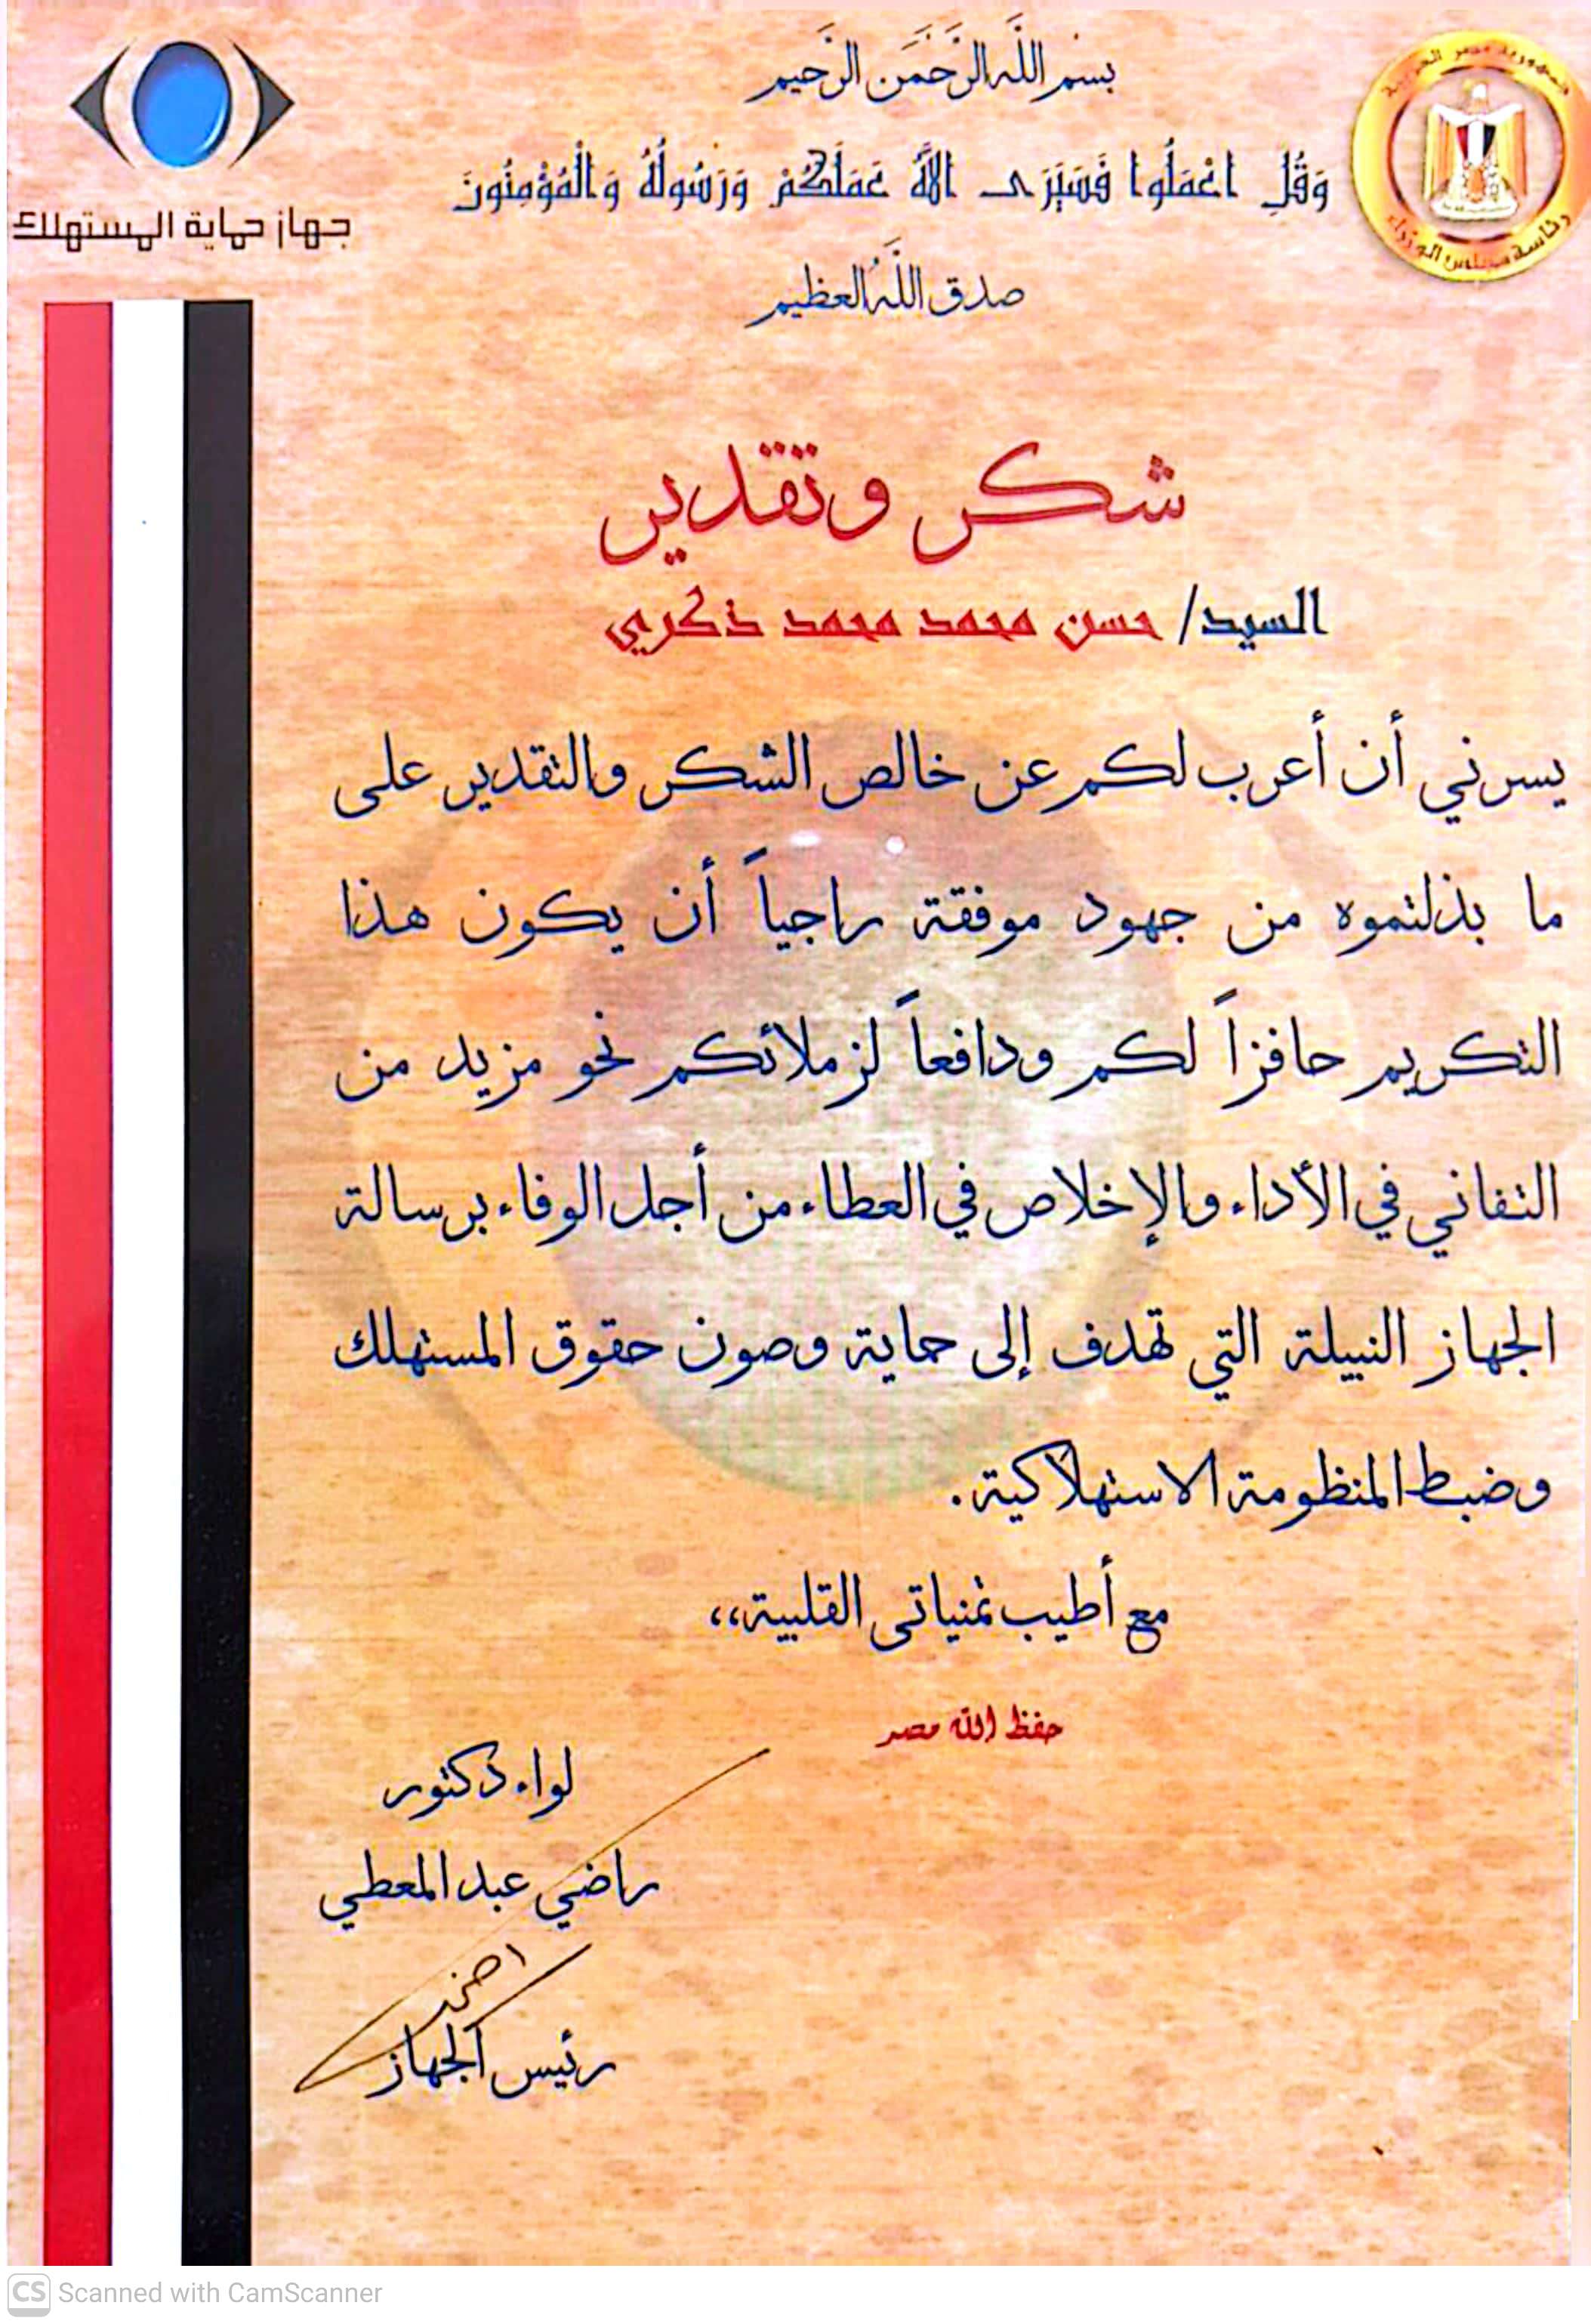 بسم الله الرحمن الرحيم
وَقُلِ اعْمَلُوا فَسَيَرَى اللَّهُ عَمَلَكُمْ وَرَسُولُهُ وَالْمُؤْمِنُونَ
صدق الله العظيم
جمهورية مصر العربية
رئاسة مجلس الوزراء
جهاز حماية المستهلك
شكر وتقدير
السيد/ حسن محمد محمد ذكري
يسرني أن أعرب لكم عن خالص الشكر والتقدير على
ما بذلتموه من جهود موفقة راجياً أن يكون هذا
التكريم حافزاً لكم ودافعاً لزملائكم نحو مزيد من
التفاني في الأداء والإخلاص في العطاء من أجل الوفاء برسالة
الجهاز النبيلة التي تهدف إلى حماية وصون حقوق المستهلك
وضبط المنظومة الاستهلاكية.
مع أطيب تمنياتى القلبية،،
حفظ الله مصر
لواء دكتور
راضي عبد المعطي
رئيس الجهاز
CS Scanned with CamScanner